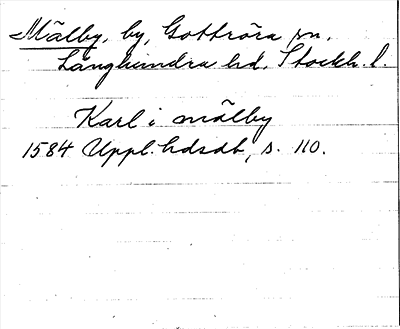 Mälby, by, Gottröra sn.
Långhundra hd. Stockh. l.
Karl i mälby
1584 Uppl. hdsdb, s. 110.